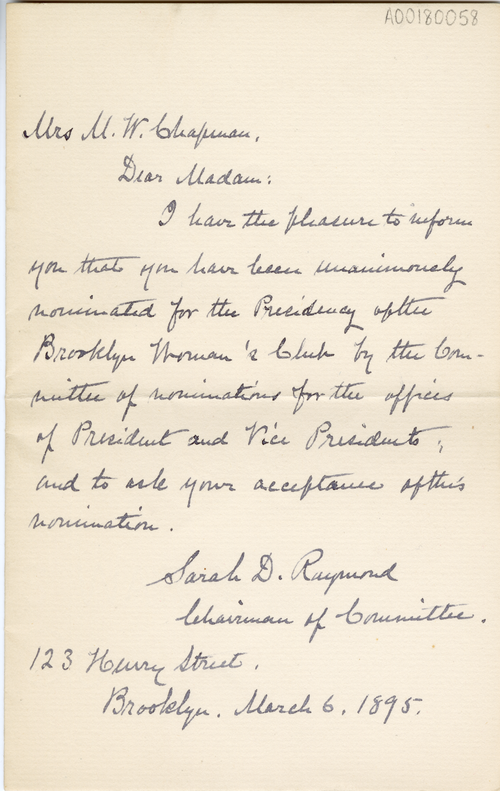 A00180058
Mrs M. W. Chapman,
Dear Madam:
I have the pleasure to inform
you that you have been unanimously
nominated for the Presidency of the
Brooklyn Woman's Club by the Com-
mittee of nominations for the offices
of President and Vice Presidents;
and to ask your acceptance of this
nomination.
Sarah D. Raymond
Chairman of Committee.
123 Henry Street.
Brooklyn. March 6. 1895.